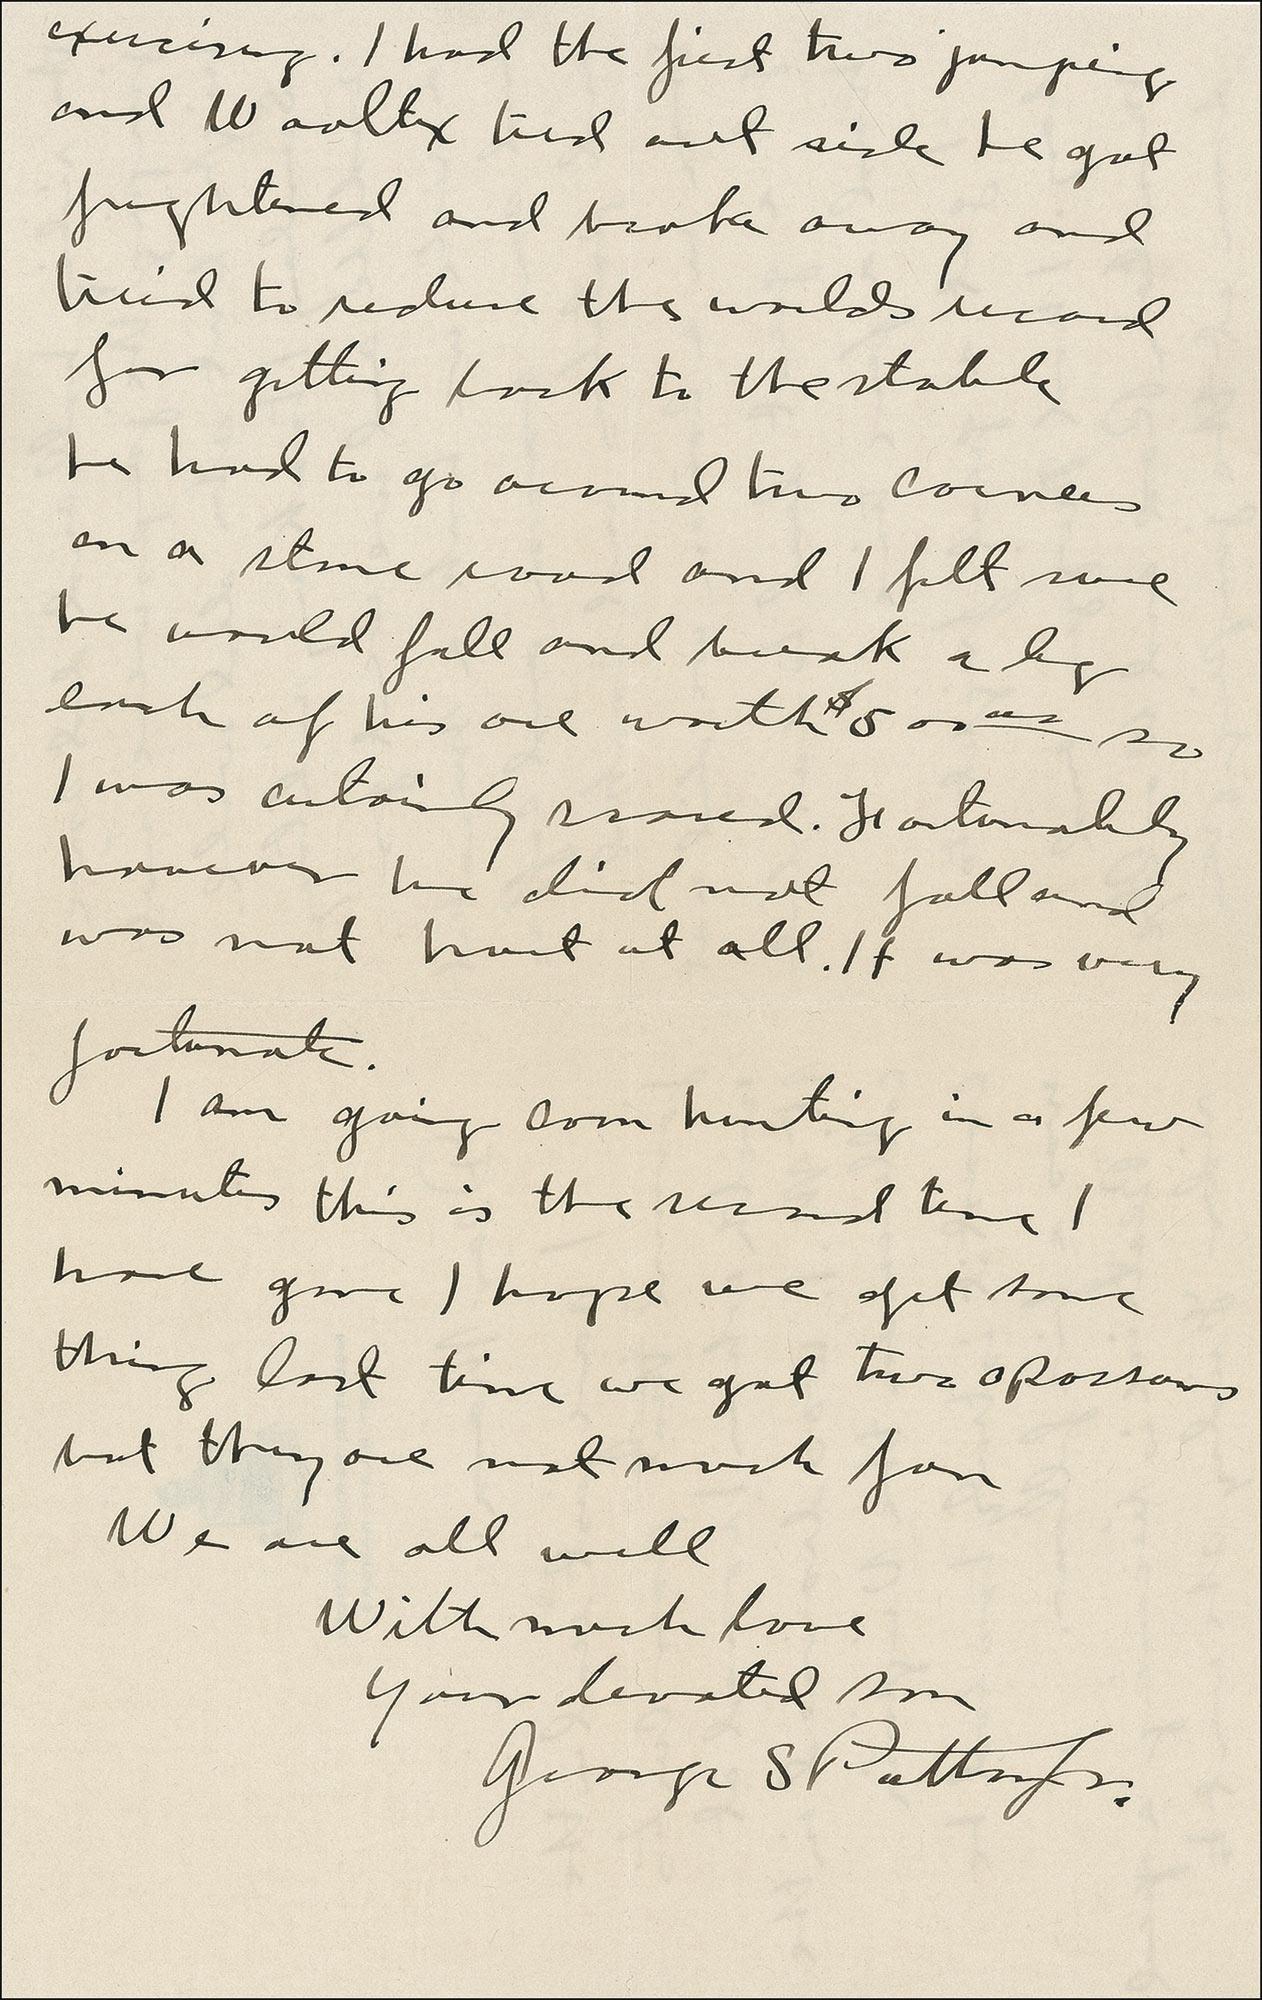 exercising. I had the first two jumping
and Wooltex tied out side he got
frightened and broke away and
tried to reduce the worlds record
for getting back to the stable
he had to go around two corners
on a stone road and I felt sure
he would fall and break a leg
each of his are worth $500 00 so
I was certainly scared. Fortunately
however he did not fall and
was not hurt at all. It was very
fortunate.
I am going coon hunting in a few
minutes this is the second time I
have gone I hope we get some
thing last time we got two opossoms
but they are not much fun
We are all well
With much love
Your devoted son
George S Patton Jr.